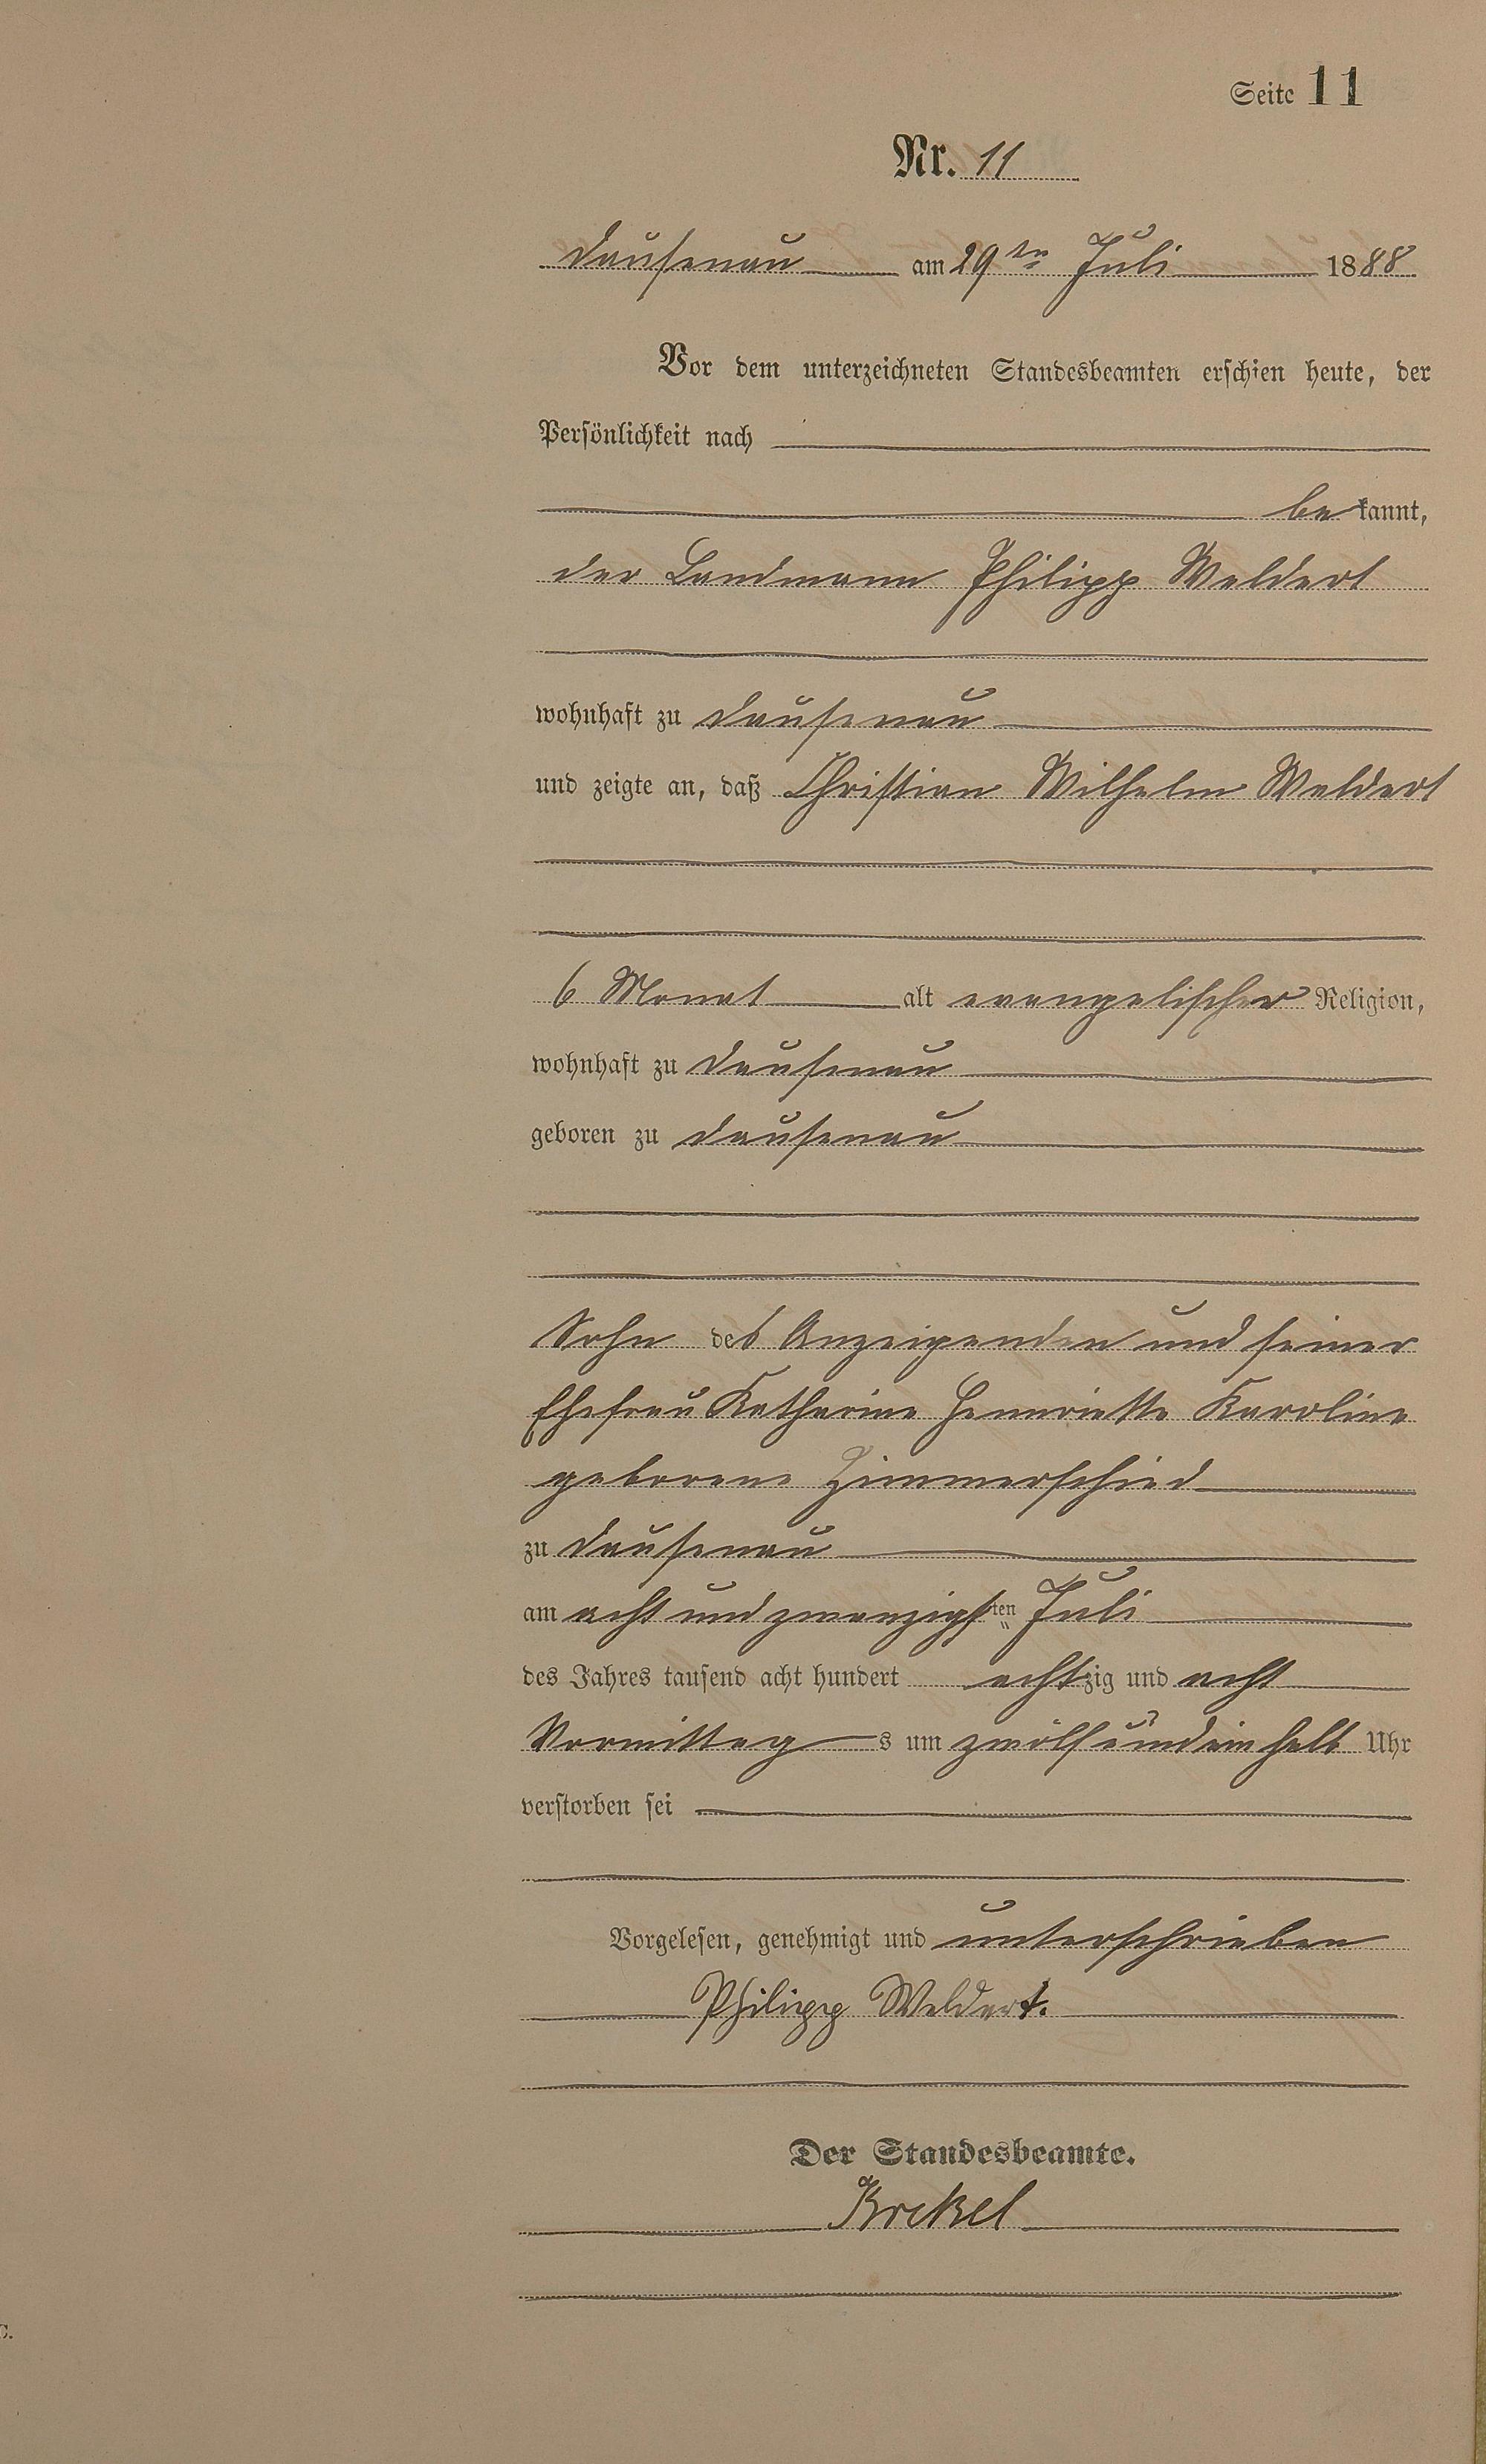 Seite 11
Nr. 11
Dausenau am 29ten Juli 1888
Vor dem unterzeichneten Standesbeamten erschien heute, der
Persönlichkeit nach
bekannt,
der Landmann Philipp Weldert
wohnhaft zu Dausenau
und zeigte an, daß Christian Wilhelm Weldert
6 Monat alt evangelischer Religion,
wohnhaft zu Dausenau
geboren zu Dausenau
Sohn des Anzeigenden und seiner
Ehefrau Katharine Hennriette Karoline
geborene Zimmerschied
zu Dausenau
am acht und zwanzigsten Juli
des Jahres tausend acht hundert achtzig und acht
Vormittags um zwölfundein halb Uhr
verstorben sei
Vorgelesen, genehmigt und unterschrieben
Philipp Weldert.
Der Standesbeamte.
Krekel